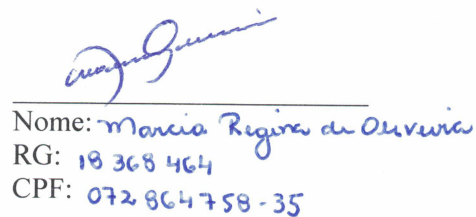 Nome: Marcia Regina de Oliveira
RG: 18 368 464
CPF: 072 864 758-35